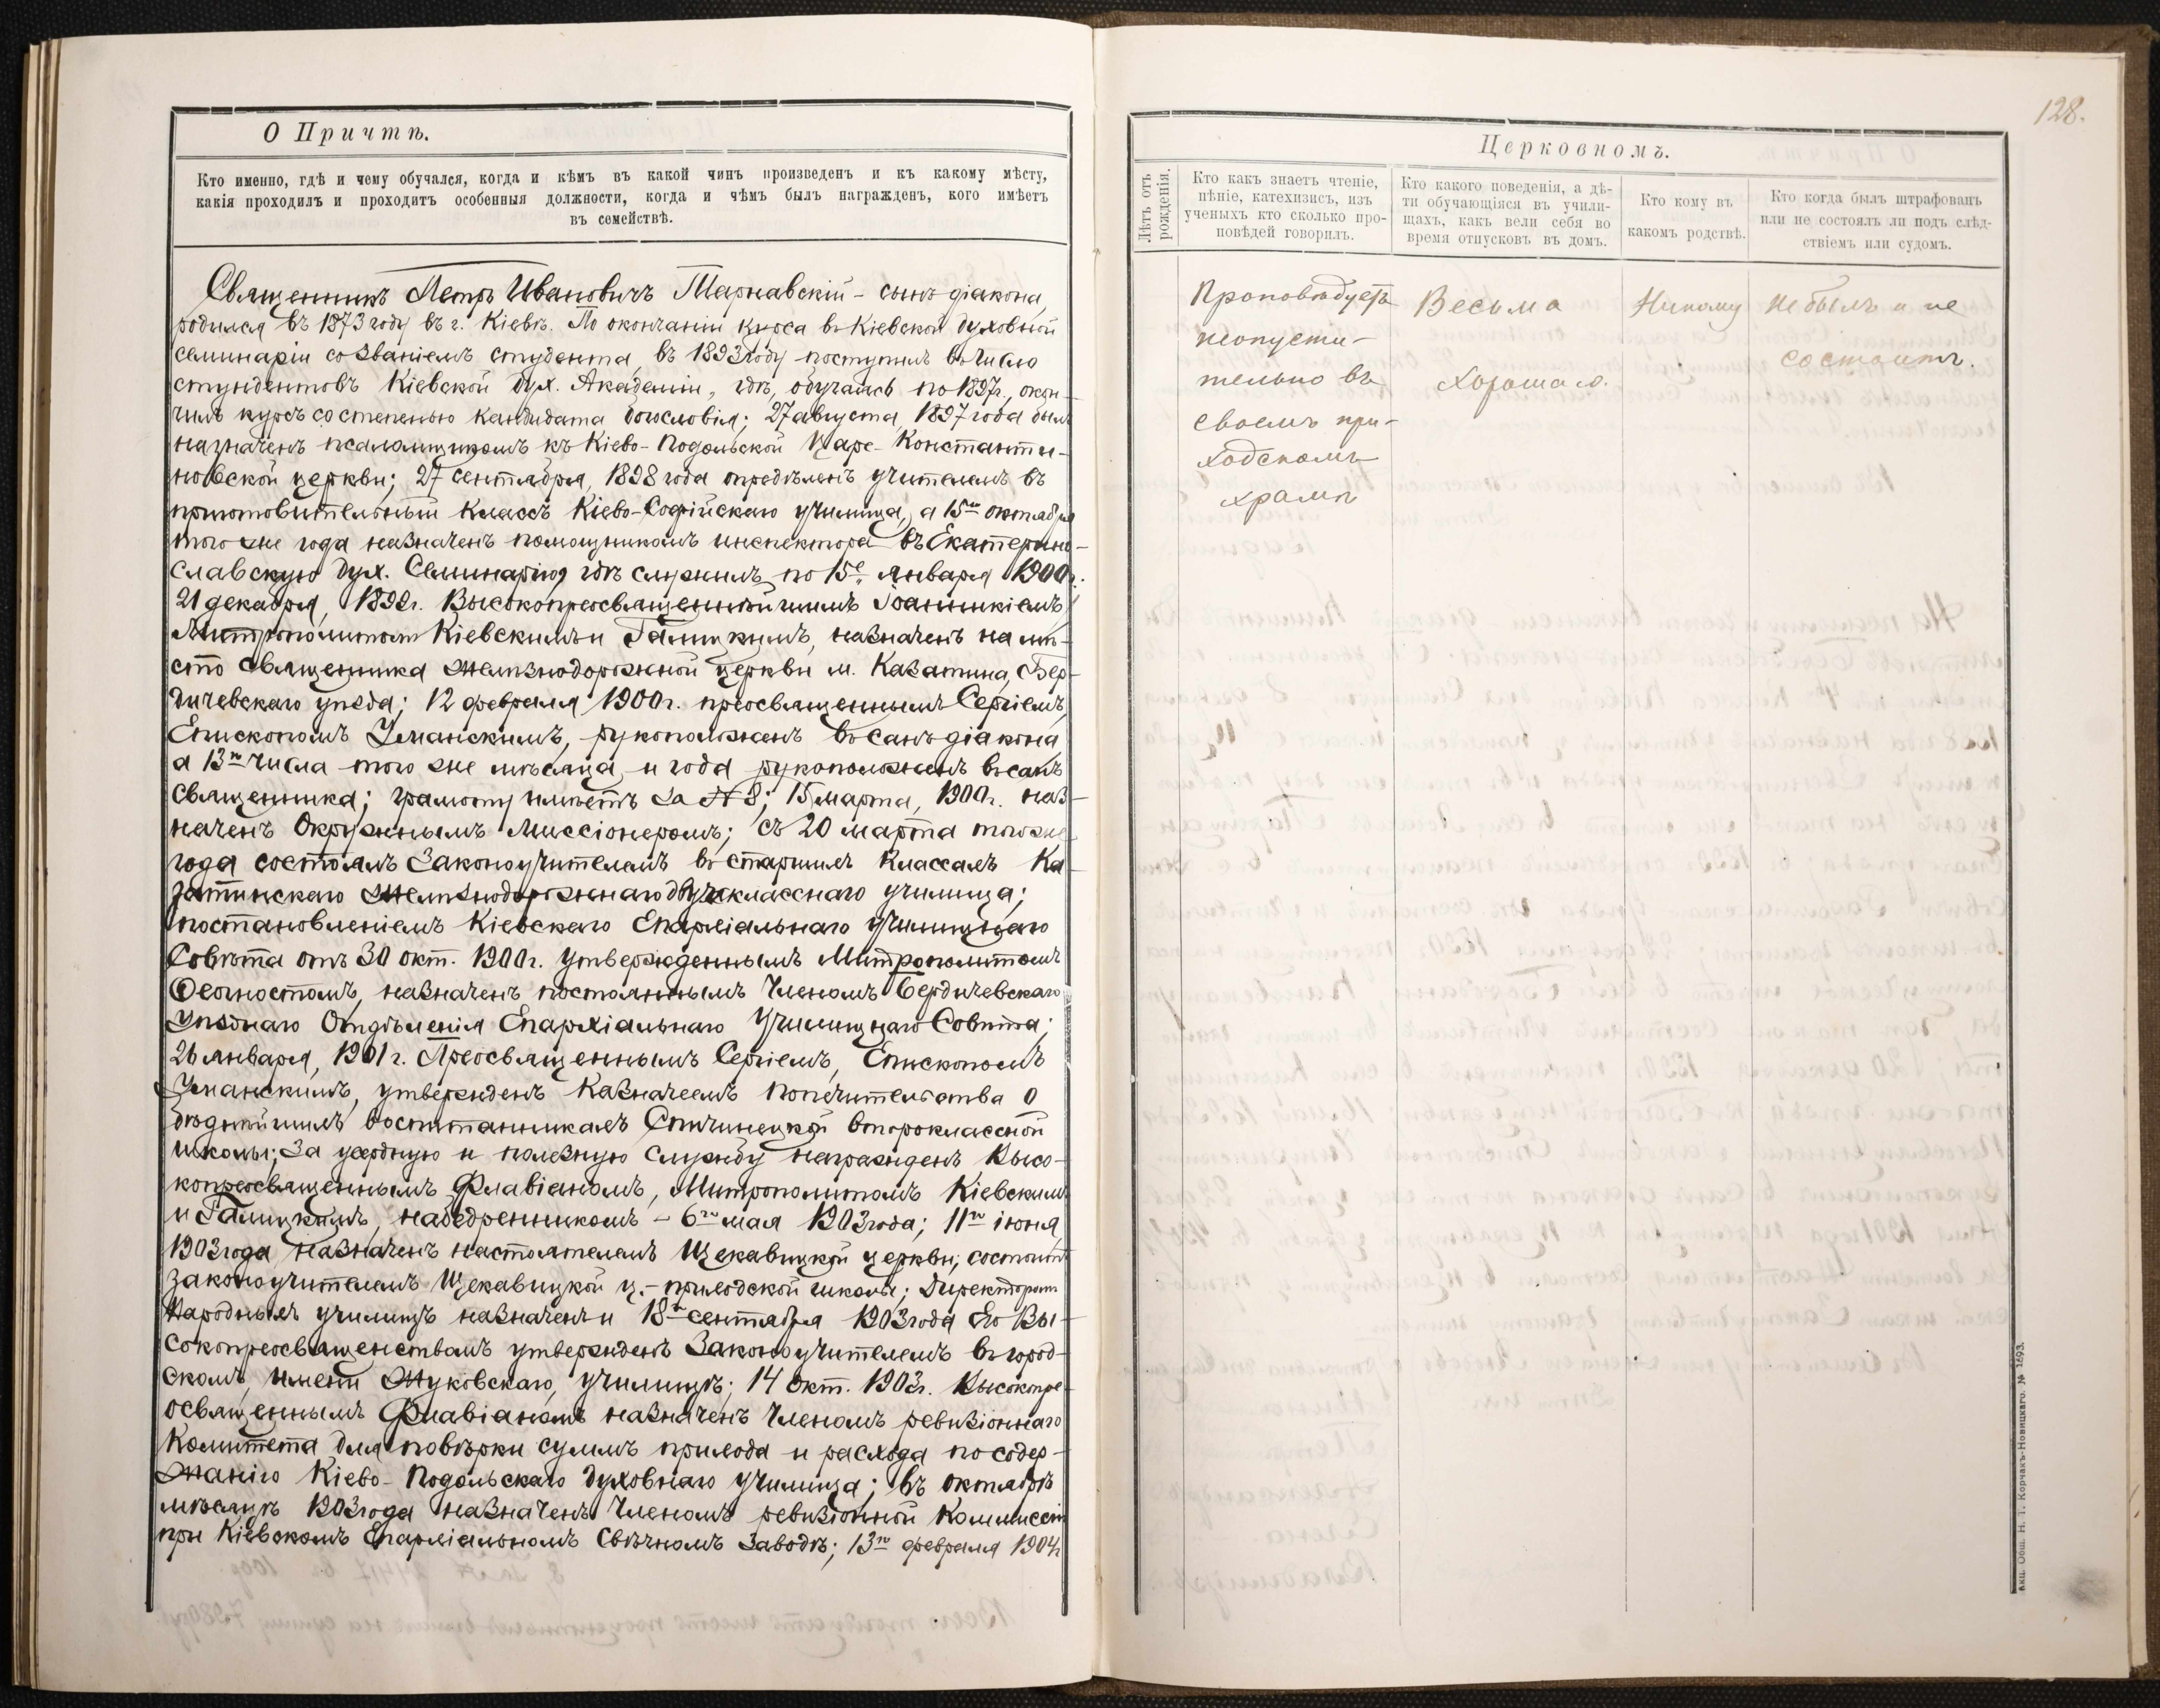 О Причтѣ.
Кто именно, гдѣ и чему обучался, когда и кѣмъ въ какой чинъ произведенъ и къ какому мѣсту,
какія проходилъ и проходитъ особенныя должности, когда и чѣмъ былъ награжденъ, кого имѣетъ
въ семействѣ.
Священникъ Петръ Ивановичъ Тарнавскій - сынъ діакона,
родился въ 1873 году въ г. Кіевѣ. По окончаніи курса въ Кіевской духовной
семинаріи со званіемъ студента, въ 1893 году поступилъ въ число
студентовъ Кіевской Дух. Академіи, гдѣ, обучаясь по 1897 г., окон-
чилъ курсъ со степенью кандидата богословія; 27 августа 1897 года былъ
назначенъ псаломщикомъ къ Кіево-Подольской Царе-Константи-
новской церкви; 27 сентября, 1898 года опредѣленъ учителемъ въ
приготовительный классъ Кіево-Софійскаго училища, а 15го октября
того же года назначенъ помощникомъ инспектора въ Екатерино-
славскую дух. Семинарію, гдѣ служилъ по 15е января 1900 г.
21 декабря, 1899 г. Высокопреосвященнѣйшимъ Іоанникіемъ,
Митрополитомъ Кіевскимъ и Галицкимъ, назначенъ на мѣ-
сто священника желѣзнодорожной церкви м. Казатина, Бер-
дичевскаго уѣзда; 12 февраля 1900 г. преосвященнымъ Сергіемъ,
Епископомъ Уманскимъ, рукоположенъ въ санъ діакона,
а 13го числа того же мѣсяца и года рукоположенъ въ санъ
священника; грамоту имѣетъ за № 8; 15 марта, 1900 г. наз-
наченъ Окружнымъ Миссіонеромъ; съ 20 марта того же
года состоялъ Законоучителемъ въ старшихъ классахъ Ка-
затинскаго желѣзнодорожнаго двухкласснаго училища;
постановленіемъ Кіевскаго Епархіальнаго Училищнаго
Совѣта отъ 30 окт. 1900 г. утвержденнымъ Митрополитомъ
Ѳеогностомъ, назначенъ постояннымъ Членомъ Бердичевскаго
Уѣзднаго Отдѣленія Епархіальнаго Училищнаго Совѣта;
26 января, 1901 г. Преосвященнымъ Сергіемъ, Епископомъ
Уманскимъ, утвержденъ Казначеемъ Попечительства о
бѣднѣйшихъ воспитанникахъ Спичинецкой второклассной
школы; за усердную и полезную службу награжденъ Высо-
копреосвященнымъ Флавіаномъ, Митрополитомъ Кіевскимъ
и Галицкимъ, набедренникомъ - 6го мая 1903 года; 11го іюня,
1903 года назначенъ настоятелемъ Щекавицкой церкви; состоитъ
Законоучителемъ Щекавицкой ц.-приходской школы; Директоромъ
Народныхъ училищъ назначенъ и 18го сентября 1903 года Его Вы-
сокопреосвященствомъ утвержденъ Законоучителемъ въ город-
скомъ, имени Жуковскаго, училищѣ; 14 окт. 1903 г. Высокопре-
освященнымъ Флавіаномъ назначенъ Членомъ ревизіоннаго
Комитета для повѣрки суммъ прихода и расхода по содер-
жанію Кіево-Подольскаго духовнаго училища; въ октябрѣ
мѣсяцѣ 1903 года назначенъ Членомъ ревизіонной Коммиссіи
при Кіевскомъ Епархіальномъ Свѣчномъ Заводѣ; 13го февраля 1904 г.
128.
Церковномъ.
Лѣтъ отъ
рожденія.
Кто какъ знаетъ чтеніе,
пѣніе, катехизисъ, изъ
ученыхъ кто сколько про-
повѣдей говорилъ.
Кто какого поведенія, а дѣ-
ти обучающіяся въ учили-
щахъ, какъ вели себя во
время отпусковъ въ домъ.
Кто кому въ
какомъ родствѣ.
Кто когда былъ штрафованъ
или не состоялъ ли подъ слѣд-
ствіемъ или судомъ.
Проповѣдуетъ
неопусти-
тельно въ
своемъ при-
ходскомъ
храмѣ
Весьма
хорошаго.
Никому
Не былъ и не
состоитъ.
Акц. Общ. Н. Т. Корчакъ-Новицкаго. № 1693.